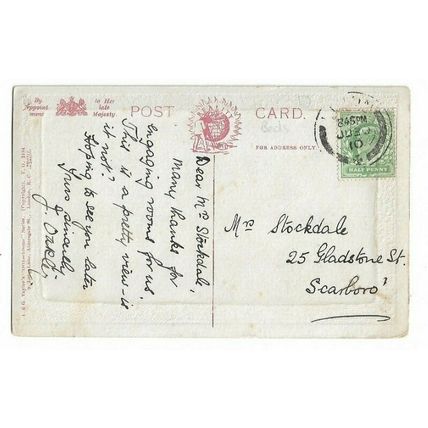 By
Appoint
ment
to Her
late
Majesty
POST CARD.
FOR ADDRESS ONLY.
Beds
845PM
10
HALF PENNY
Dear Mrs Stockdale,
Many thanks for
engaging rooms for us.
This is a pretty view - is
it not?
Hoping to see you later
Yours sincerely
Mrs Stockdale
25 Gladstone St.
Scarboro'